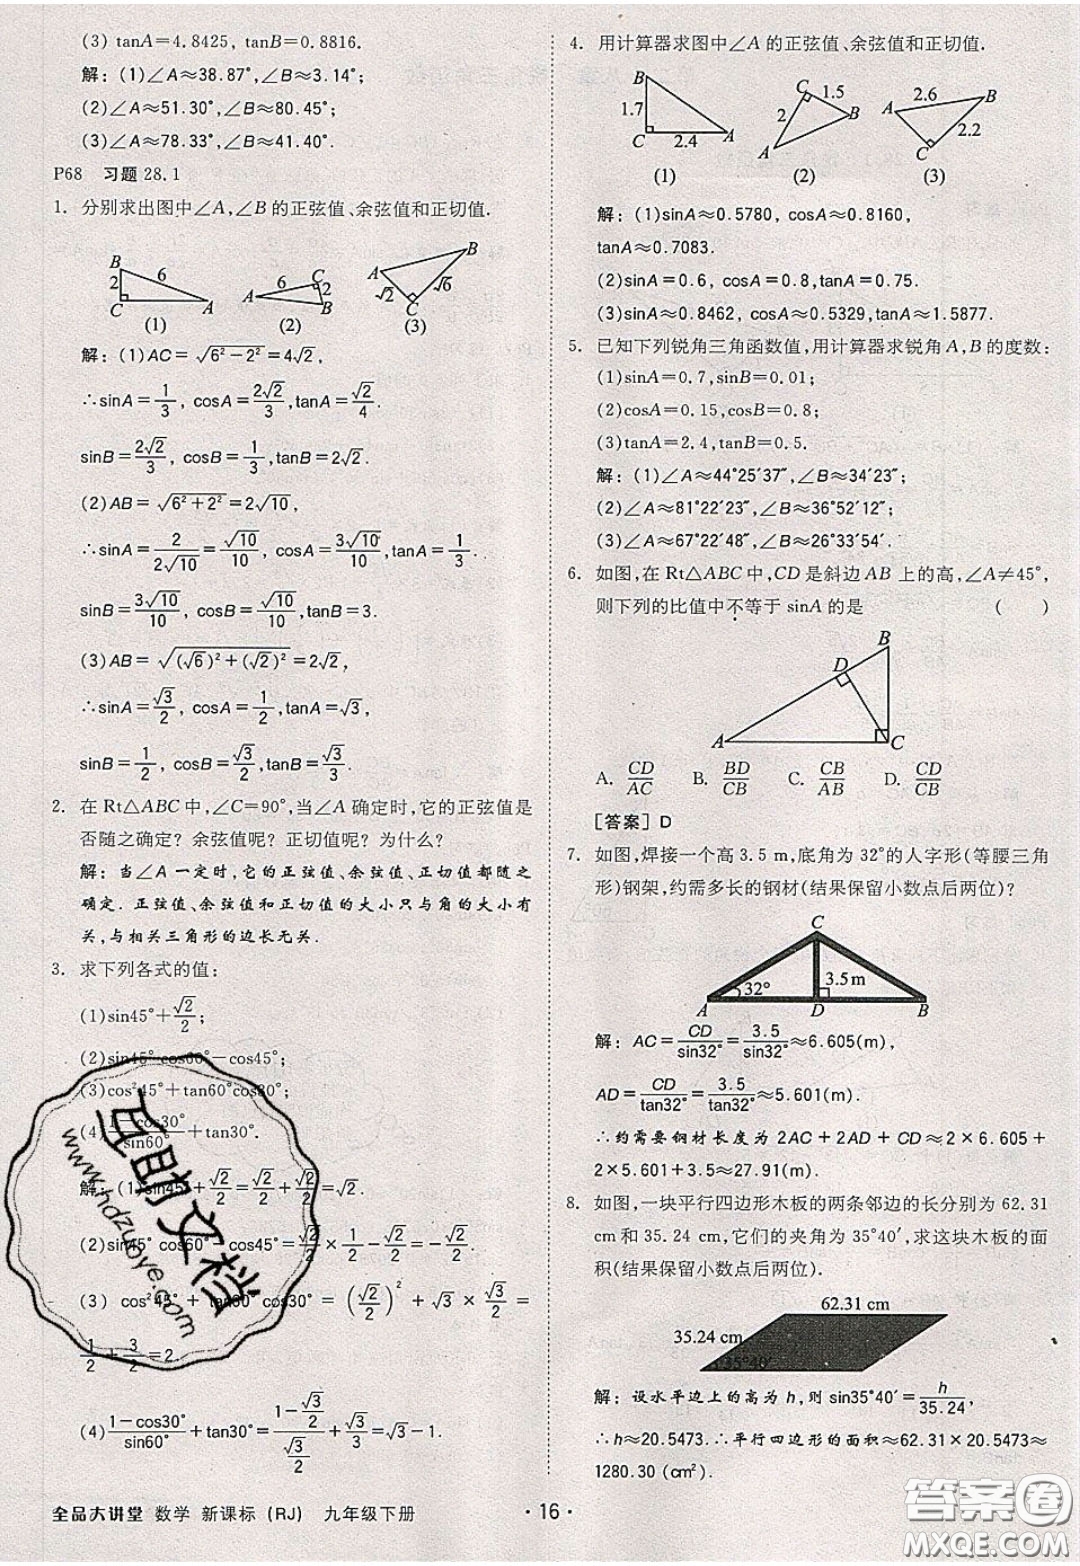 (3) tanA=4.8425, tanB=0.8816.
解：(1)∠A≈38.87°,∠B≈3.14°;
(2)∠A≈51.30°,∠B≈80.45°;
(3)∠A≈78.33°,∠B≈41.40°.
P68 习题28.1
1. 分别求出图中∠A,∠B的正弦值、余弦值和正切值.
B 2 C 6 A (1)
A 6 C 2 B (2)
A √2 C √6 B (3)
解：(1)AC=√(6²-2²)=4√2,
∴sinA=1/3, cosA=2√2/3, tanA=√2/4.
sinB=2√2/3, cosB=1/3, tanB=2√2.
(2)AB=√(6²+2²)=2√10,
∴sinA=2/(2√10)=√10/10, cosA=3√10/10, tanA=1/3.
sinB=3√10/10, cosB=√10/10, tanB=3.
(3)AB=√((√6)²+(√2)²)=2√2,
∴sinA=√3/2, cosA=1/2, tanA=√3,
sinB=1/2, cosB=√3/2, tanB=√3/3.
2. 在Rt△ABC中,∠C=90°,当∠A确定时,它的正弦值是
否随之确定？余弦值呢？正切值呢？为什么？
解：当∠A一定时,它的正弦值、余弦值、正切值都随之
确定.正弦值、余弦值和正切值的大小只与角的大小有
关,与相关三角形的边长无关.
3. 求下列各式的值：
(1)sin45°+√2/2;
(2)sin45°cos60°-cos45°;
(3)cos²45°+tan60°cos30°;
(4)(1-cos30°)/sin60°+tan30°.
解：(1)sin45°+√2/2=√2/2+√2/2=√2.
(2)sin45° cos60° cos45°=√2/2×1/2-√2/2=-√2/4.
(3) cos²45° + tan30° cos30° = (√2/2)² + √3 × √3/2 =
1/2+3/2=2.
(4)(1-cos30°)/sin60°+tan30°=(1-√3/2)/(√3/2)+√3/3=√3-1.
4. 用计算器求图中∠A的正弦值、余弦值和正切值.
1.7 C 2.4 A (1)
C 1.5 B 2 A (2)
A 2.6 B 2.2 C (3)
解：(1)sinA≈0.5780, cosA≈0.8160,
tanA≈0.7083.
(2)sinA=0.6, cosA=0.8,tanA=0.75.
(3)sinA≈0.8462, cosA≈0.5329,tanA≈1.5877.
5. 已知下列锐角三角函数值,用计算器求锐角A,B的度数：
(1)sinA=0.7,sinB=0.01;
(2)cosA=0.15,cosB=0.8;
(3)tanA=2.4,tanB=0.5.
解：(1)∠A≈44°25′37″,∠B≈34′23″;
(2)∠A≈81°22′23″,∠B≈36°52′12″;
(3)∠A≈67°22′48″,∠B≈26°33′54″.
6. 如图,在Rt△ABC中,CD是斜边AB上的高,∠A≠45°,
则下列的比值中不等于sinA的是 ( )
B
D
A C
A. CD/AC B. BD/CB C. CB/AB D. CD/CB
[答案]D
7. 如图,焊接一个高3.5 m,底角为32°的人字形(等腰三角
形)钢架,约需多长的钢材(结果保留小数点后两位)？
C
32° 3.5 m
A D B
解：AC=CD/sin32°=3.5/sin32°≈6.605(m),
AD=CD/tan32°=3.5/tan32°≈5.601(m).
∴约需要钢材长度为2AC+2AD+CD≈2×6.605+
2×5.601+3.5≈27.91(m).
8. 如图,一块平行四边形木板的两条邻边的长分别为62.31
cm和35.24 cm,它们的夹角为35°40′,求这块木板的面
积(结果保留小数点后两位).
62.31 cm
35.24 cm
35°40′
解：设水平边上的高为h,则sin35°40′=h/35.24,
∴h≈20.5473.∴平行四边形的面积≈62.31×20.5473≈
1280.30 (cm²).
全品大讲堂 数学 新课标 (RJ) 九年级下册
· 16 ·
互助文档
www.hdzuoye.com
答案圈
MXQE.COM